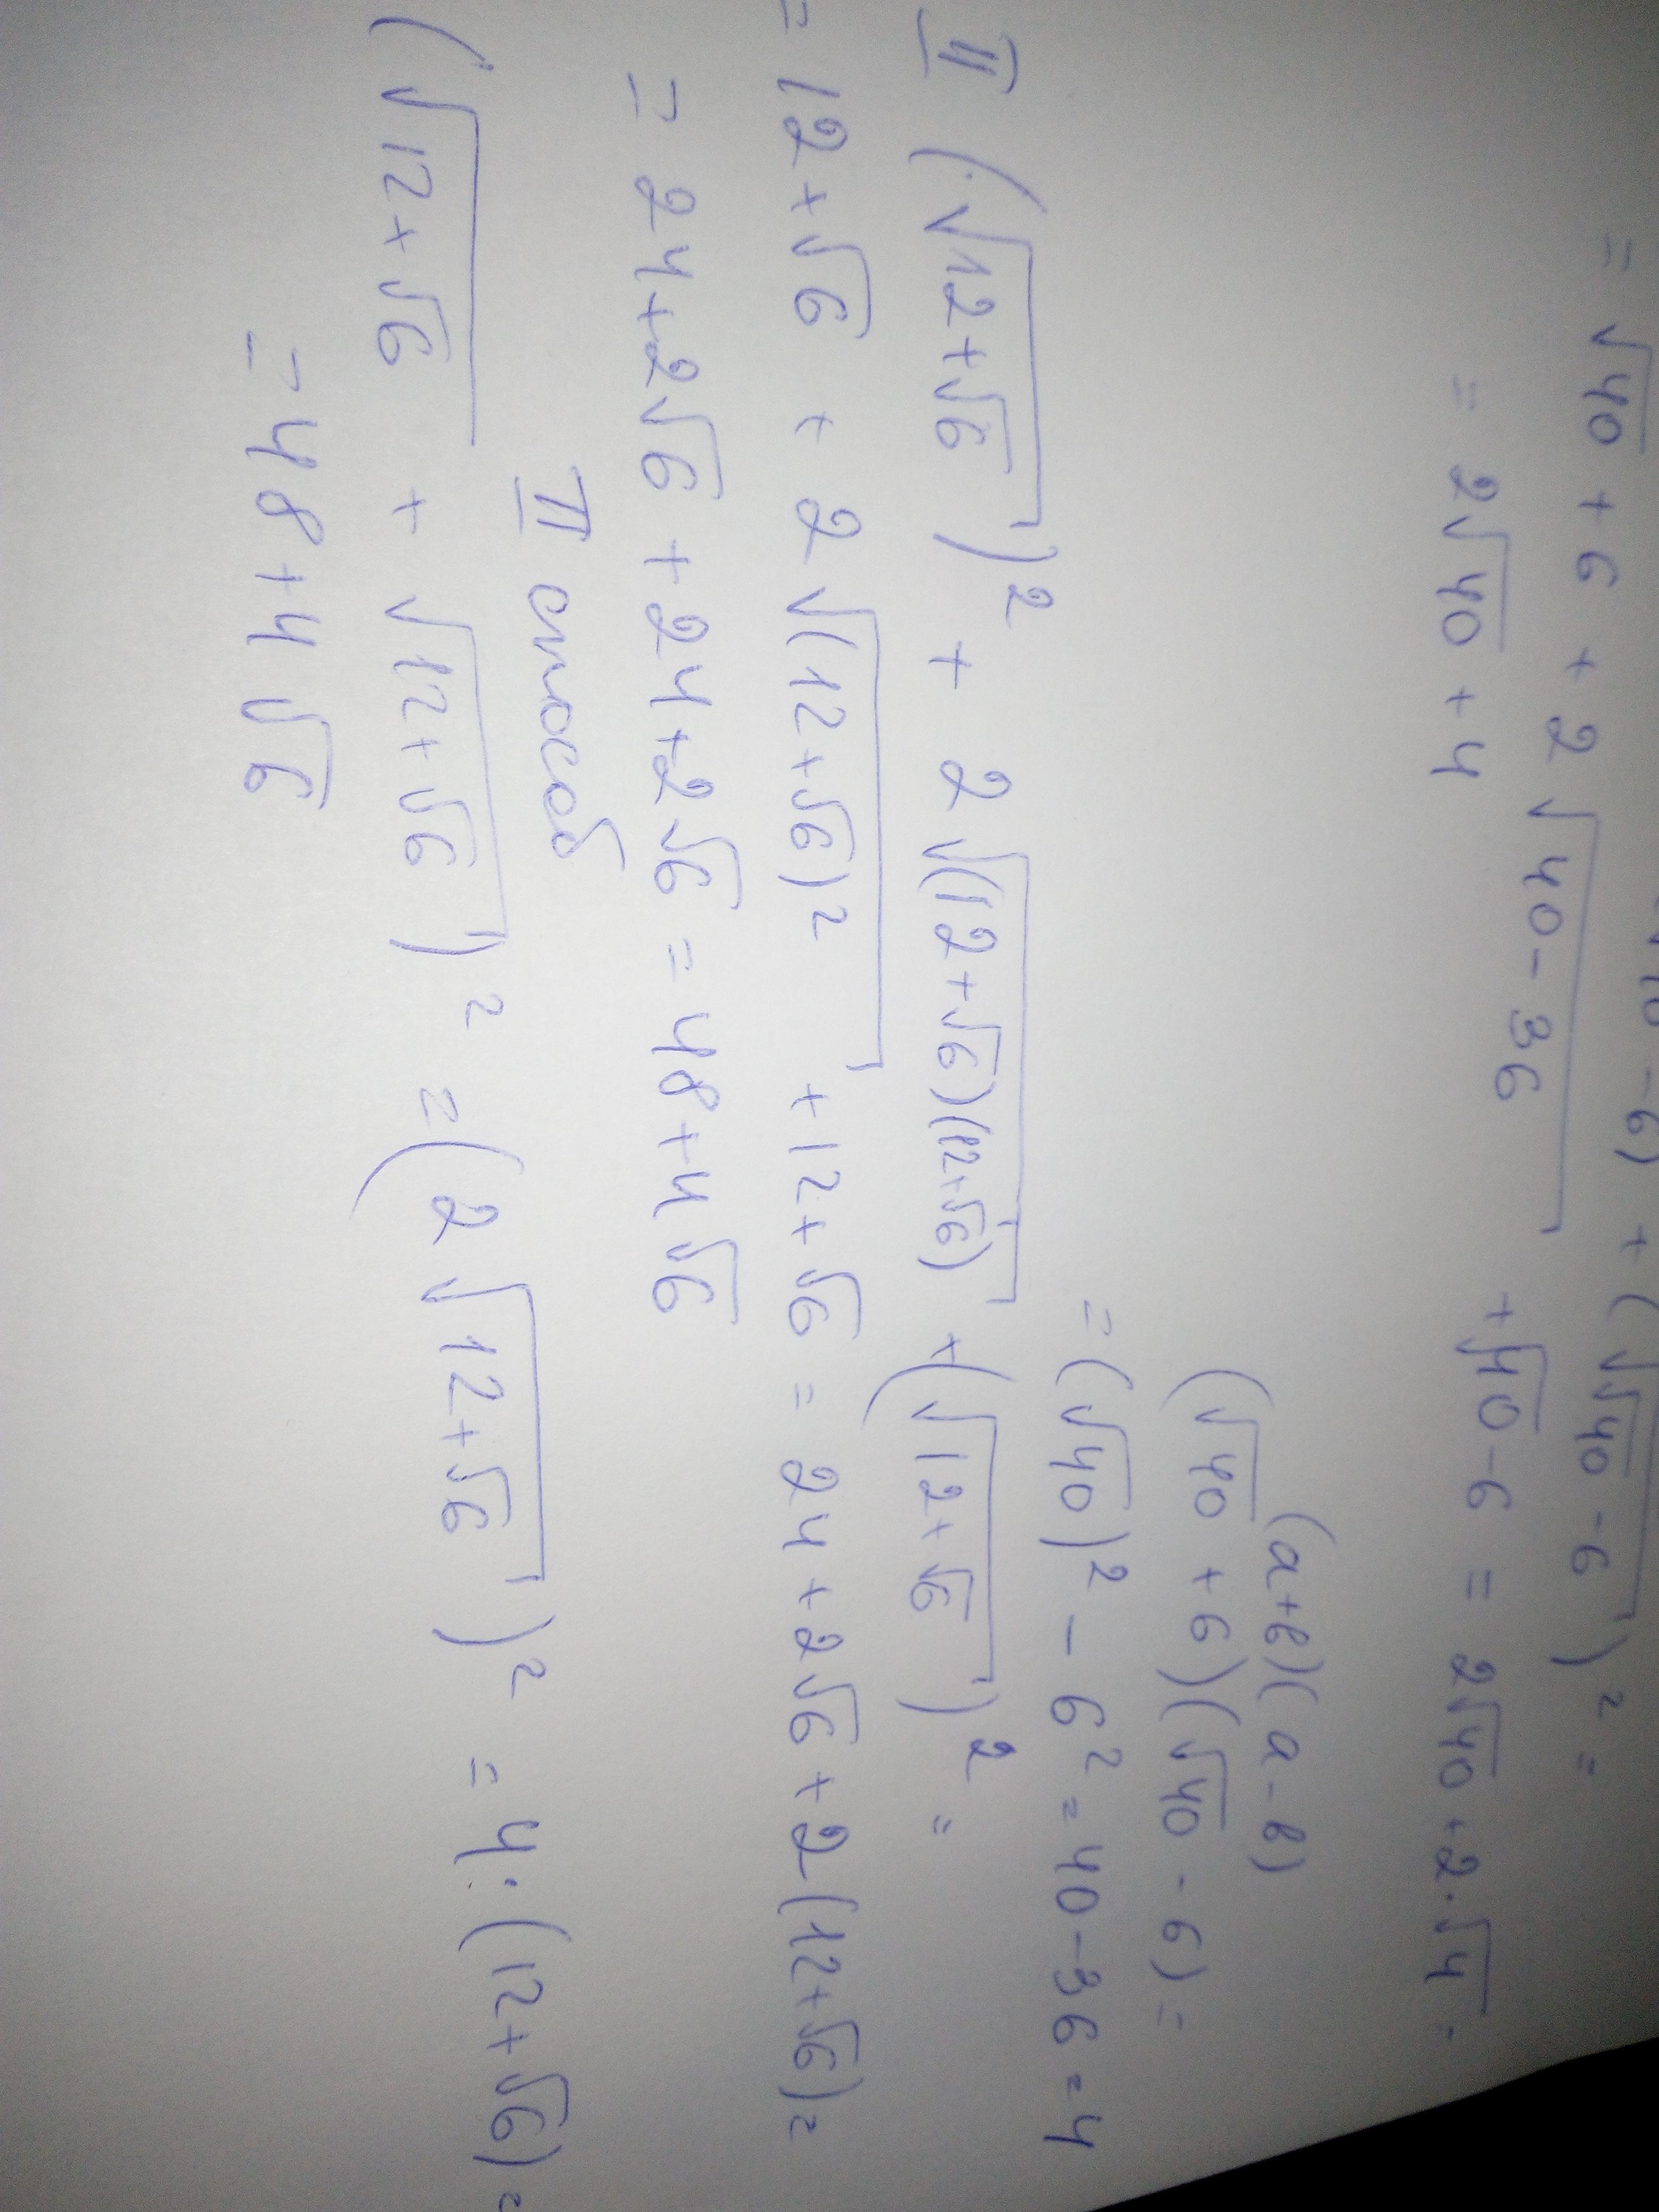 = √40 + 6 + 2√(40 - 36) + √40 - 6 = 2√40 + 2·√4 =
= 2√40 + 4
(a+b)(a-b)
(√40 + 6)(√40 - 6) =
= (√40)² - 6² = 40 - 36 = 4
II (√(12+√6))² + 2√((12+√6)(12+√6)) + (√(12+√6))² =
= 12+√6 + 2√((12+√6)²) + 12+√6 = 24+2√6+2(12+√6) =
= 24+2√6 + 24+2√6 = 48+4√6
II способ
(√(12+√6) + √(12+√6))² = (2√(12+√6))² = 4·(12+√6) =
= 48+4√6